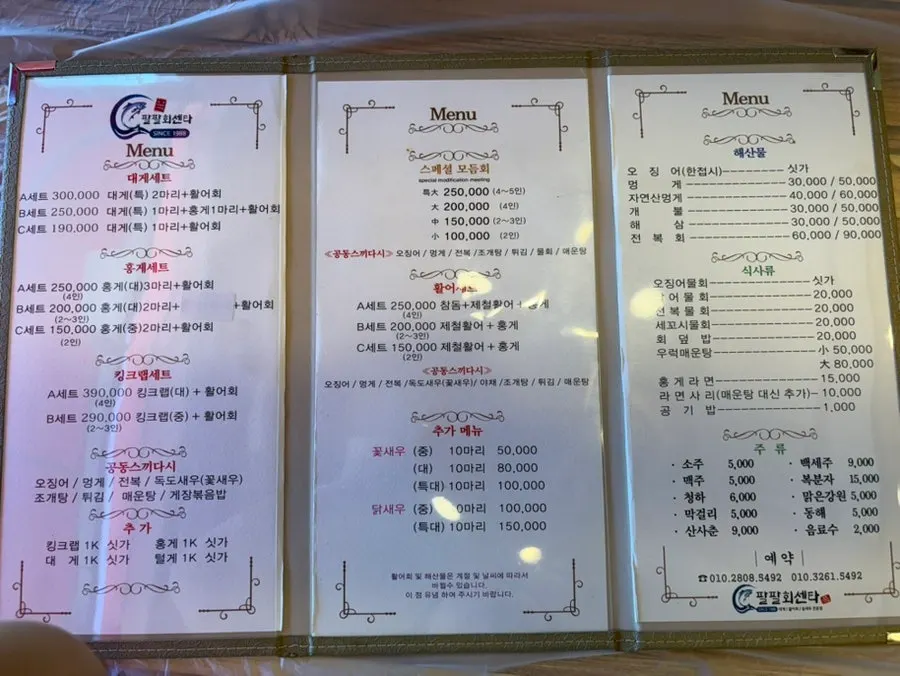 팔팔회센타
SINCE 1988
Menu
대게세트
A세트 300,000 대게(특) 2마리+활어회
B세트 250,000 대게(특) 1마리+홍게1마리+활어회
C세트 190,000 대게(특) 1마리+활어회
홍게세트
A세트 250,000 홍게(대)3마리+활어회
(4인)
B세트 200,000 홍게(대)2마리+ +활어회
(2~3인)
C세트 150,000 홍게(중)2마리+활어회
(2인)
킹크랩세트
A세트 390,000 킹크랩(대) + 활어회
(4인)
B세트 290,000 킹크랩(중) + 활어회
(2~3인)
공동스끼다시
오징어 / 멍게 / 전복 / 독도새우(꽃새우)
조개탕 / 튀김 / 매운탕 / 게장볶음밥
추 가
킹크랩 1K 싯가 홍게 1K 싯가
대 게 1K 싯가 털게 1K 싯가
Menu
스메셜 모듬회
special modification meeting
특大 250,000 (4~5인)
大 200,000 (4인)
中 150,000 (2~3인)
小 100,000 (2인)
≪공동스끼다시≫ 오징어 / 멍게 / 전복 / 조개탕 / 튀김 / 물회 / 매운탕
활어세트
A세트 250,000 참돔+제철활어 + 홍게
(4인)
B세트 200,000 제철활어 + 홍게
(2~3인)
C세트 150,000 제철활어 + 홍게
(2인)
≪공동스끼다시≫
오징어 / 멍게 / 전복 /독도새우(꽃새우)/ 야채 /조개탕 / 튀김 / 매운탕
추가 메뉴
꽃새우 (중) 10마리 50,000
(대) 10마리 80,000
(특대) 10마리 100,000
닭새우 (중) 10마리 100,000
(특대) 10마리 150,000
활어회 및 해산물은 계절 및 날씨에 따라서
바뀔수 있습니다.
이 점 유념 하며 주시기 바랍니다.
Menu
해산물
오 징 어(한접시)--------- 싯가
멍 게 ---------------- 30,000 / 50,000
자연산멍게 --------------- 40,000 / 60,000
개 불 --------------- 30,000 / 50,000
해 삼 --------------- 30,000 / 50,000
전 복 회 --------------- 60,000 / 90,000
식사류
오징어물회 -------------- 싯가
어 물 회 -------------- 20,000
전 복 물 회 -------------- 20,000
세꼬시물회 -------------- 20,000
회 덮 밥 -------------- 20,000
우럭매운탕 -------------- 小 50,000
大 80,000
홍 게 라 면 -------------- 15,000
라 면 사 리(매운탕 대신 추가)- 10,000
공 기 밥 -------------- 1,000
주 류
· 소주 5,000 · 백세주 9,000
· 맥주 5,000 · 복분자 15,000
· 청하 6,000 · 맑은강원 5,000
· 막걸리 5,000 · 동해 5,000
· 산사춘 9,000 · 음료수 2,000
| 예 약 |
☎010.2808.5492 010.3261.5492
팔팔회센타
SINCE 1988